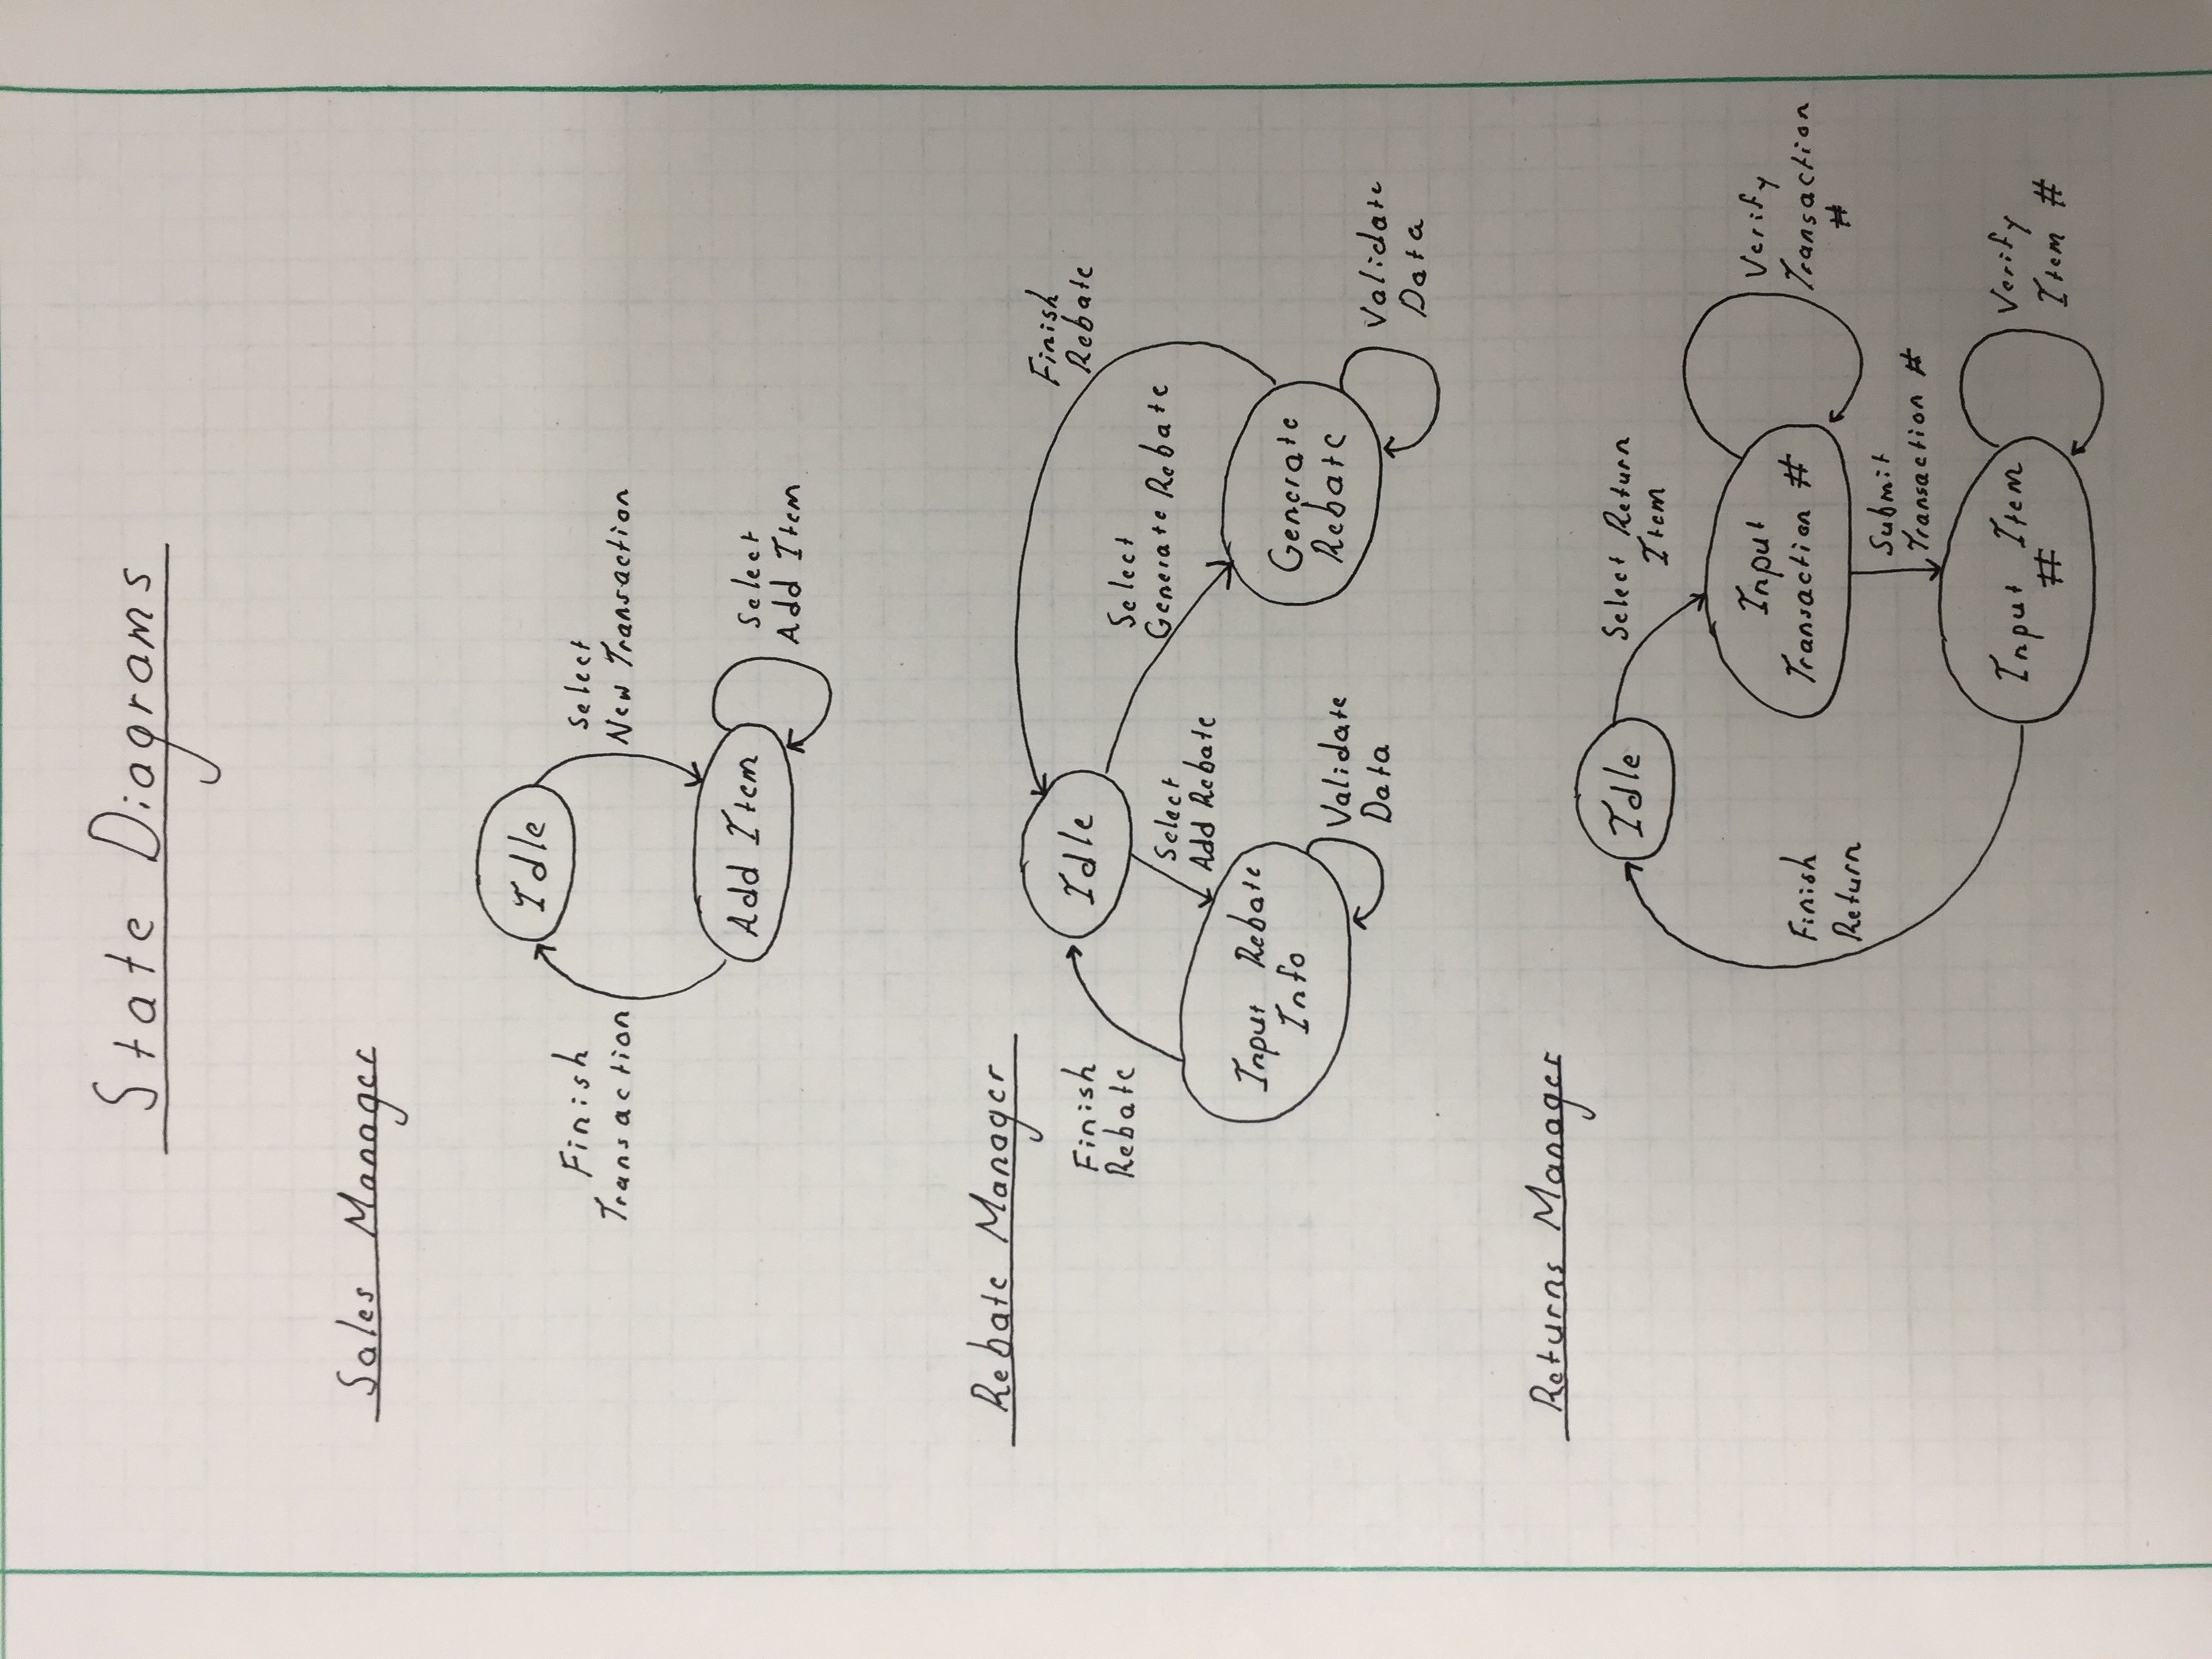 State Diagrams
Sales Manager
Idle
Finish
Transaction
Select
New Transaction
Add Item
Select
Add Item
Rebate Manager
Idle
Finish
Rebate
Finish
Rebate
Select
Generate Rebate
Select
Add Rebate
Input Rebate
Info
Generate
Rebate
Validate
Data
Validate
Data
Returns Manager
Idle
Select Return
Item
Input
Transaction #
Verify
Transaction
#
Finish
Return
Submit
Transaction #
Input Item
#
Verify
Item #